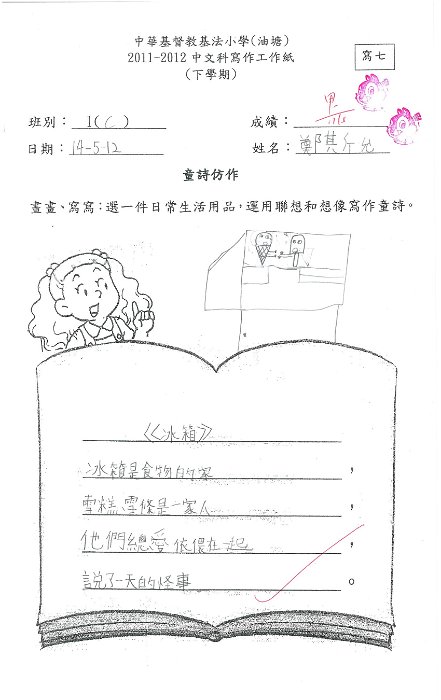 中華基督教基法小學(油塘)
2011-2012中文科寫作工作紙
(下學期)
寫七
班別： 1(C)
成績：
日期： 14-5-12
姓名： 鄭其
童詩仿作
畫畫、寫寫：選一件日常生活用品，運用聯想和想像寫作童詩。
《冰箱》
冰箱是食物的家，
雪糕雪條是一家人，
他們總愛依偎在一起，
說了一天的怪事。